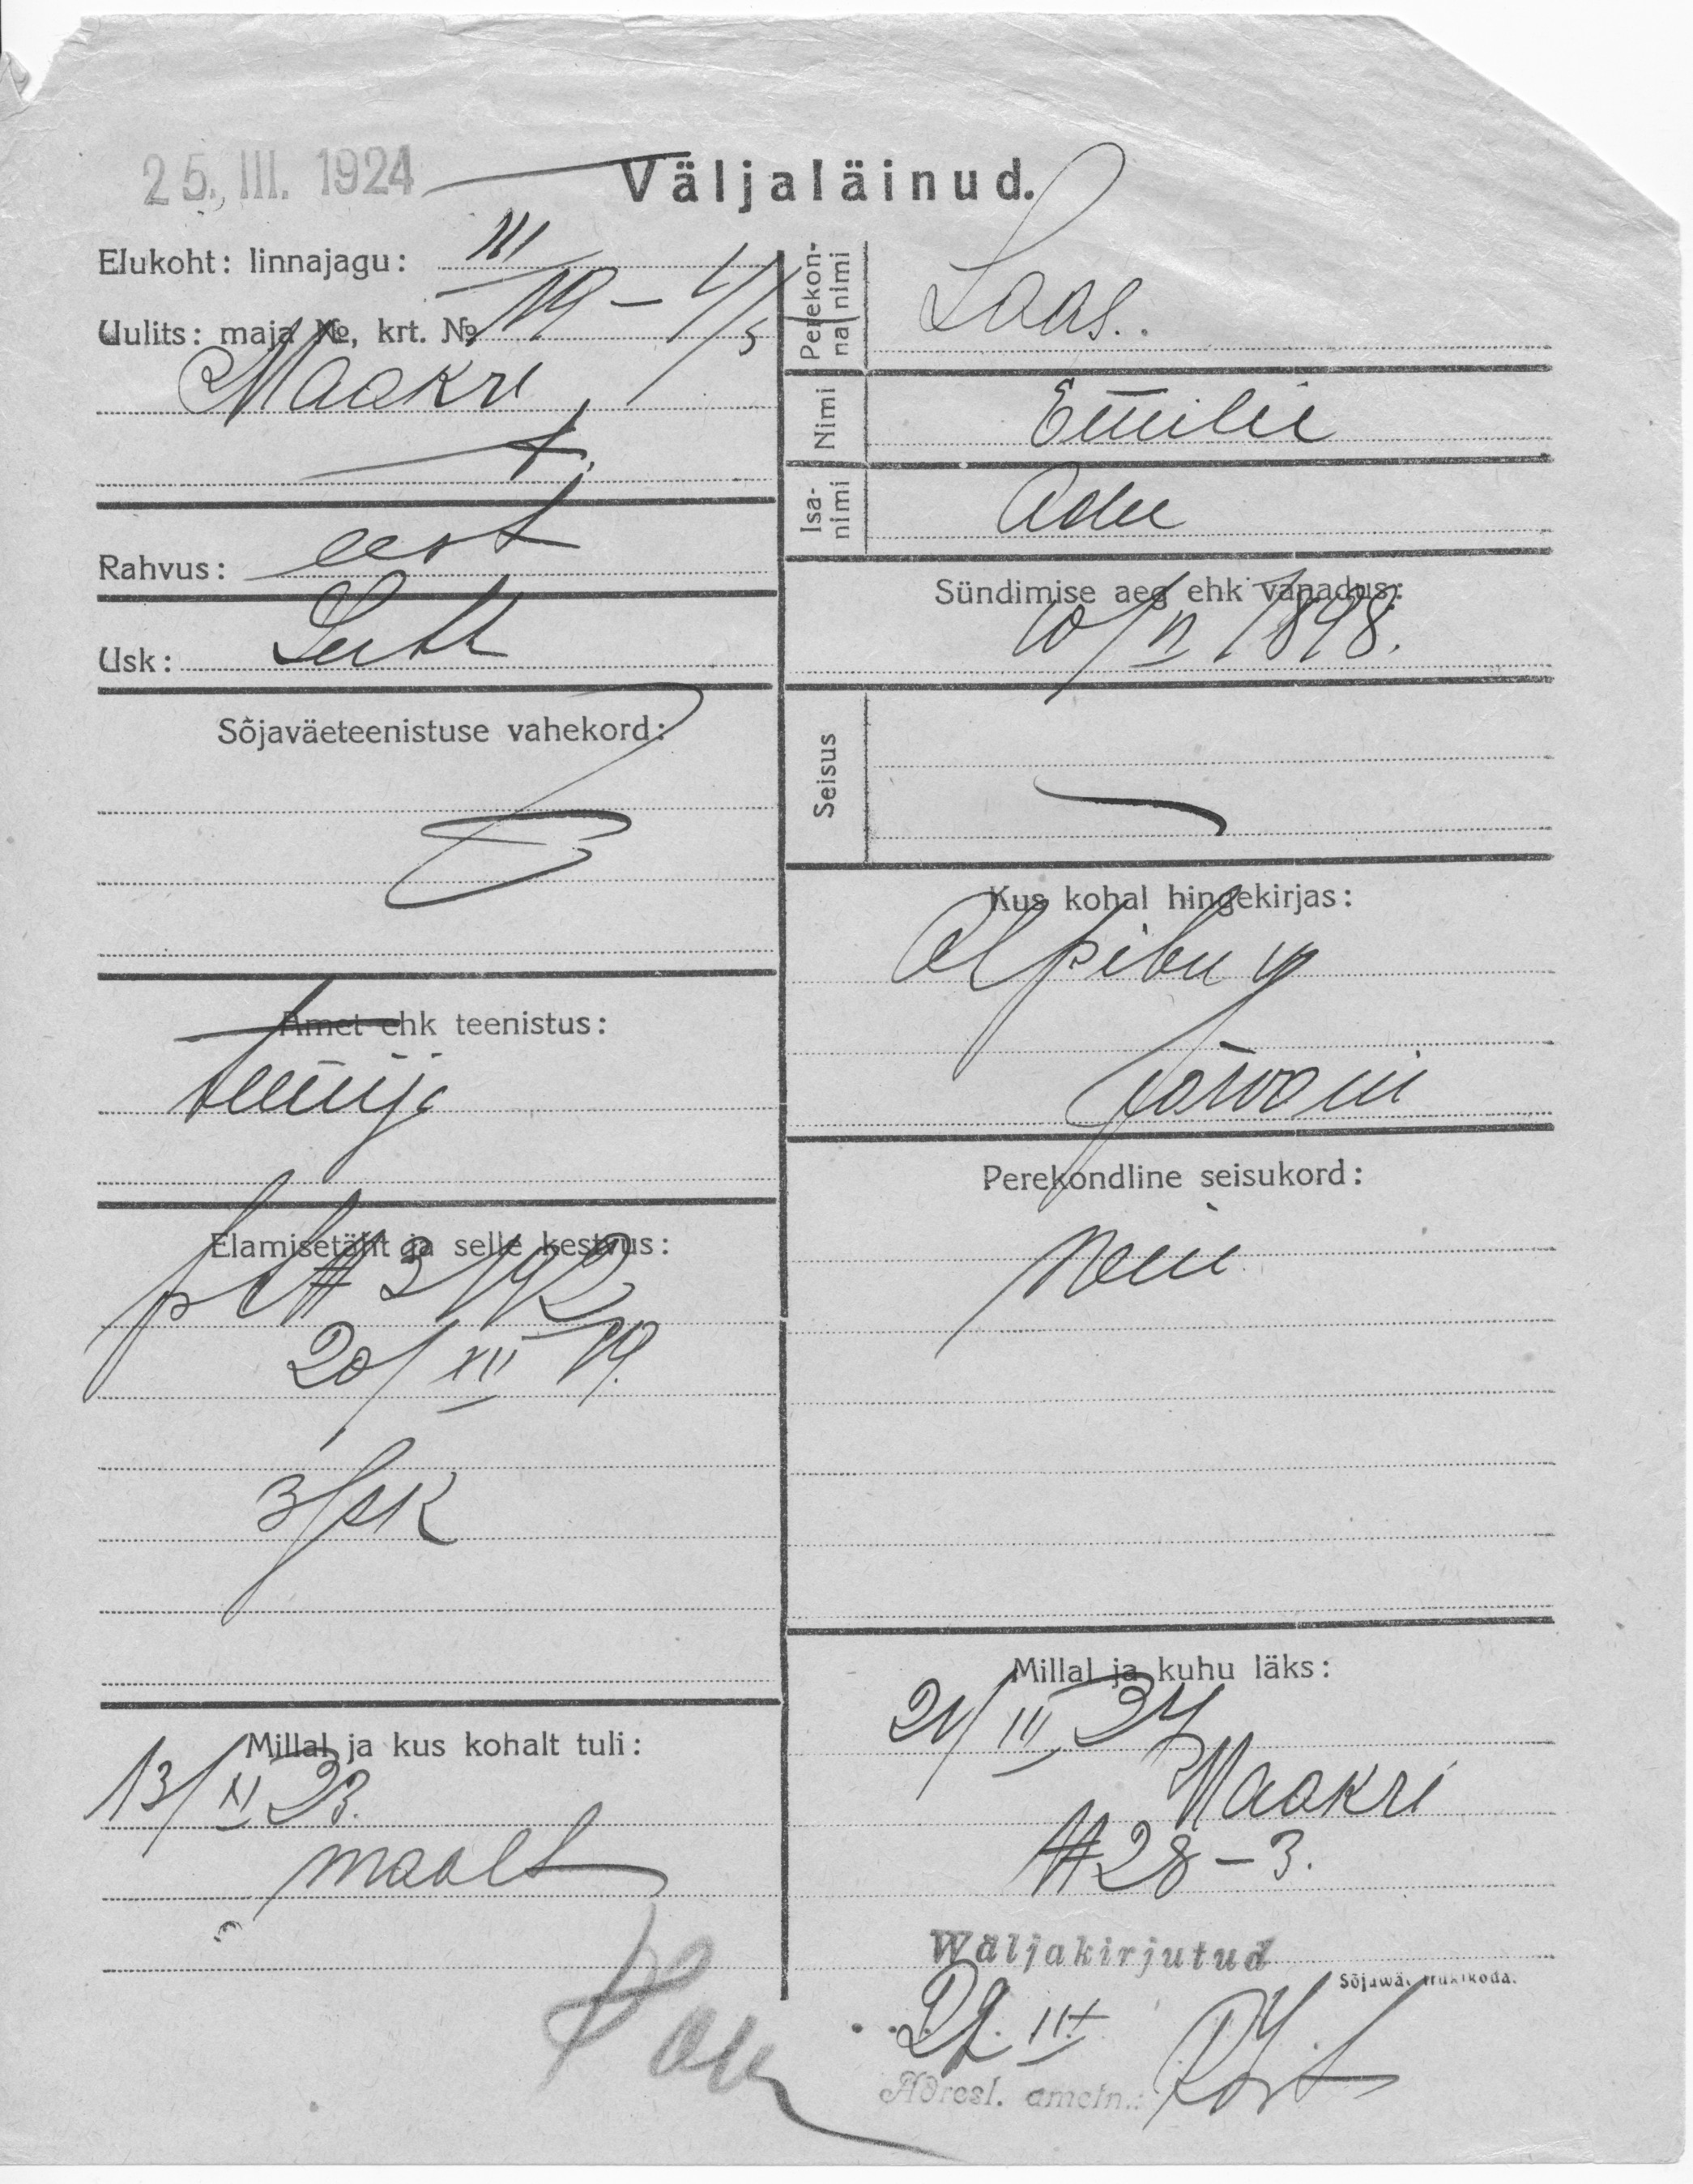 25. III. 1924
Väljaläinud.
Elukoht: linnajagu: III
Uulits: maja №, krt. № 19 – 1/5
Maakri
Rahvus: eest
Usk: Lutt
Sõjaväeteenistuse vahekord:
Amet ehk teenistus:
teenija
Elamisetäht ja selle kestvus:
20/XII 19.
Millal ja kus kohalt tuli:
13/XI 23.
maalt
Perekon-
na nimi
Laas.
Nimi
Emilie
Isa-
nimi
Adu
Sündimise aeg ehk vanadus:
10/VI 1898.
Seisus
Kus kohal hingekirjas:
Alpibu
Järvam
Perekondline seisukord:
Neiu
Millal ja kuhu läks:
21/III 24
Maakri
№ 28 – 3.
Wäljakirjutud
Sõjawäe trükikoda.
Adresl. ametn.: